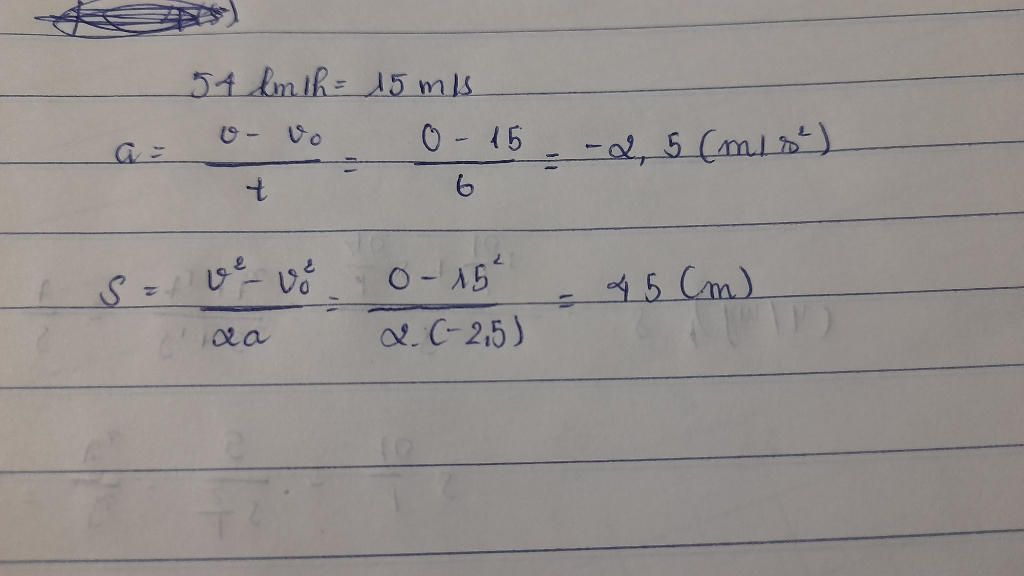 54 km/h = 15 m/s
a = \frac{v - v₀}{t} = \frac{0 - 15}{6} = -2,5 (m/s²)
S = \frac{v² - v₀²}{2a} = \frac{0 - 15²}{2.(-2,5)} = 45 (m)